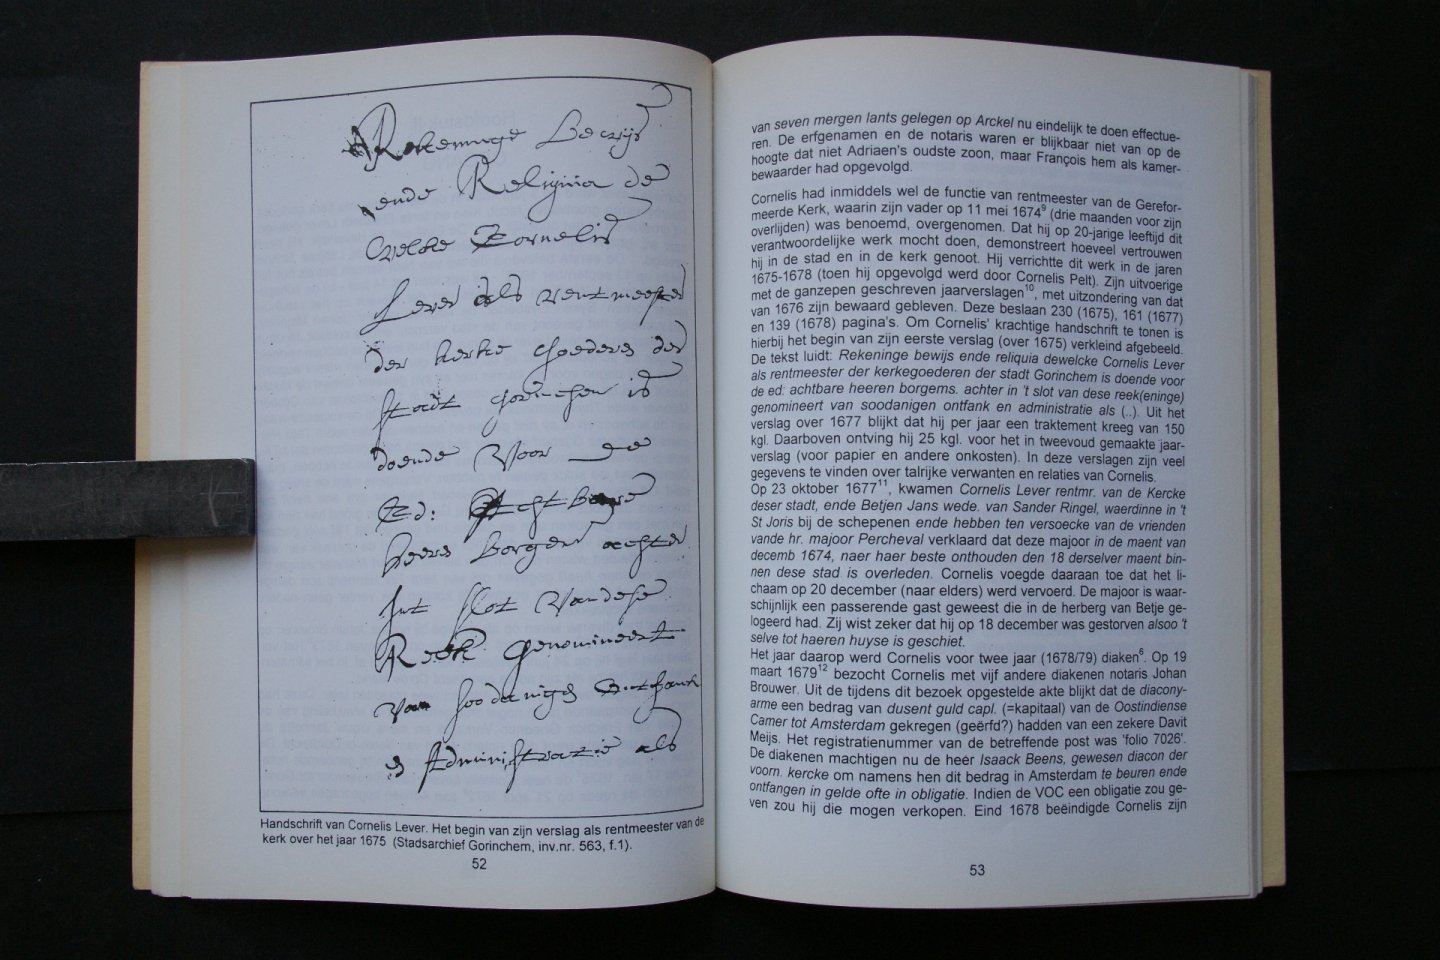 Rekeninge Bewijs
ende Reliquia de
welcke Cornelis
Lever als rentmeester
der kerke Goederen der
stadt Gorinchem is
doende Voor de
Ed: Achtbare
heeren borgem achter
Int slot Van dese
Reek Genomineert
Van soodanigen ontfank
en Administratie als
Handschrift van Cornelis Lever. Het begin van zijn verslag als rentmeester van de
kerk over het jaar 1675 (Stadsarchief Gorinchem, inv.nr. 563, f.1).
52
van seven mergen lants gelegen op Arckel nu eindelijk te doen effectue-
ren. De erfgenamen en de notaris waren er blijkbaar niet van op de
hoogte dat niet Adriaen's oudste zoon, maar François hem als kamer-
bewaarder had opgevolgd.
Cornelis had inmiddels wel de functie van rentmeester van de Gerefor-
meerde Kerk, waarin zijn vader op 11 mei 1674⁹ (drie maanden voor zijn
overlijden) was benoemd, overgenomen. Dat hij op 20-jarige leeftijd dit
verantwoordelijke werk mocht doen, demonstreert hoeveel vertrouwen
hij in de stad en in de kerk genoot. Hij verrichtte dit werk in de jaren
1675-1678 (toen hij opgevolgd werd door Cornelis Pelt). Zijn uitvoerige
met de ganzepen geschreven jaarverslagen¹⁰, met uitzondering van dat
van 1676 zijn bewaard gebleven. Deze beslaan 230 (1675), 161 (1677)
en 139 (1678) pagina's. Om Cornelis' krachtige handschrift te tonen is
hierbij het begin van zijn eerste verslag (over 1675) verkleind afgebeeld.
De tekst luidt: Rekeninge bewijs ende reliquia dewelcke Cornelis Lever
als rentmeester der kerkegoederen der stadt Gorinchem is doende voor
de ed: achtbare heeren borgems. achter in 't slot van dese reek(eninge)
genomineert van soodanigen ontfank en administratie als (..). Uit het
verslag over 1677 blijkt dat hij per jaar een traktement kreeg van 150
kgl. Daarboven ontving hij 25 kgl. voor het in tweevoud gemaakte jaar-
verslag (voor papier en andere onkosten). In deze verslagen zijn veel
gegevens te vinden over talrijke verwanten en relaties van Cornelis.
Op 23 oktober 1677¹¹, kwamen Cornelis Lever rentmr. van de Kercke
deser stadt, ende Betjen Jans wede. van Sander Ringel, waerdinne in 't
St Joris bij de schepenen ende hebben ten versoecke van de vrienden
vande hr. majoor Percheval verklaard dat deze majoor in de maent van
decemb 1674, naer haer beste onthouden den 18 derselver maent bin-
nen dese stad is overleden. Cornelis voegde daaraan toe dat het li-
chaam op 20 december (naar elders) werd vervoerd. De majoor is waar-
schijnlijk een passerende gast geweest die in de herberg van Betje ge-
logeerd had. Zij wist zeker dat hij op 18 december was gestorven alsoo 't
selve tot haeren huyse is geschiet.
Het jaar daarop werd Cornelis voor twee jaar (1678/79) diaken⁶. Op 19
maart 1679¹² bezocht Cornelis met vijf andere diakenen notaris Johan
Brouwer. Uit de tijdens dit bezoek opgestelde akte blijkt dat de diacony-
arme een bedrag van dusent guld capl. (=kapitaal) van de Oostindiense
Camer tot Amsterdam gekregen (geërfd?) hadden van een zekere Davit
Meijs. Het registratienummer van de betreffende post was 'folio 7026'.
De diakenen machtigen nu de heer Isaack Beens, gewesen diacon der
voorn. kercke om namens hen dit bedrag in Amsterdam te beuren ende
ontfangen in gelde ofte in obligatie. Indien de VOC een obligatie zou ge-
ven zou hij die mogen verkopen. Eind 1678 beëindigde Cornelis zijn
53